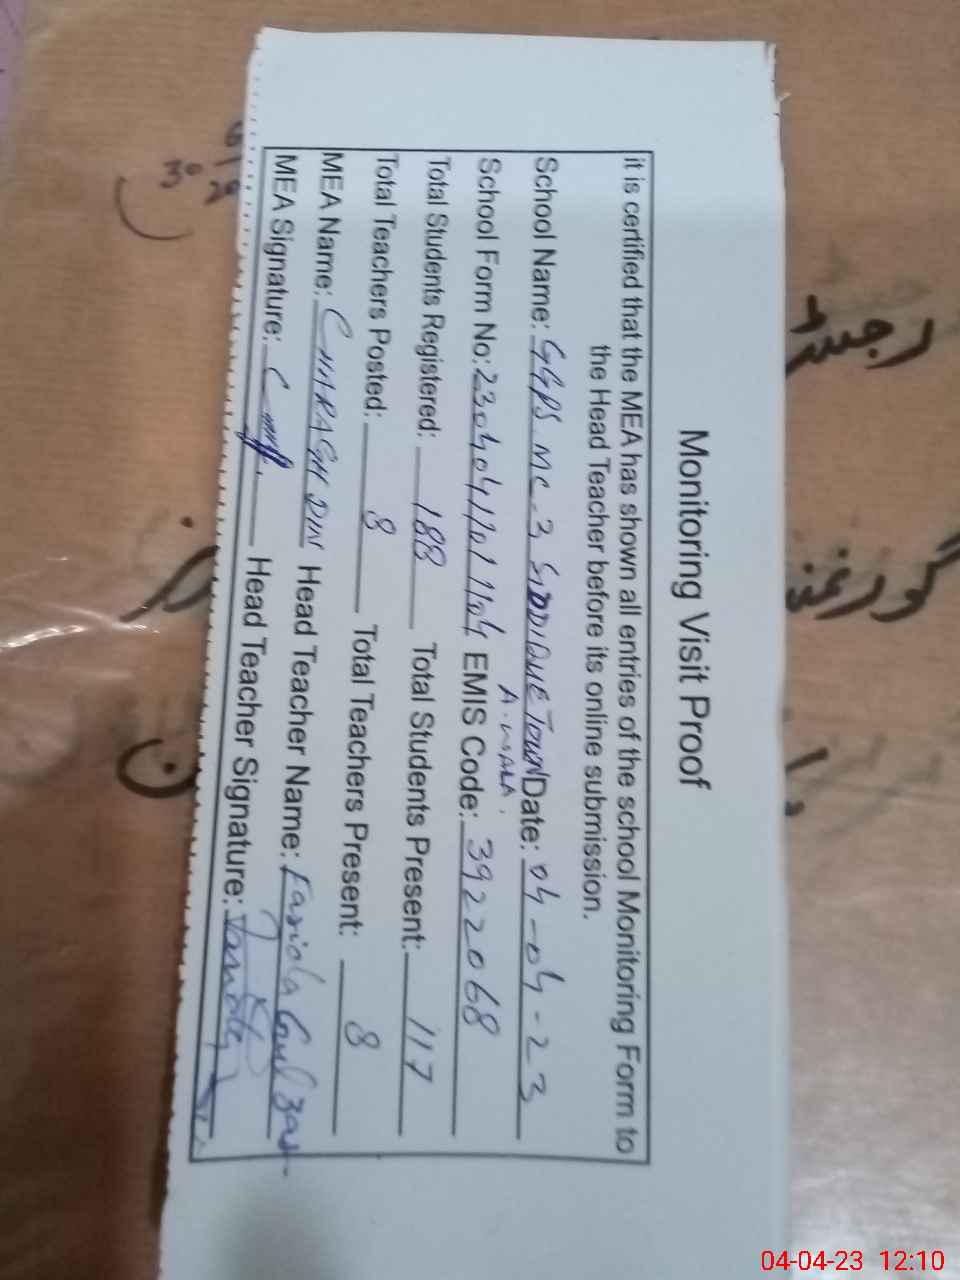 Monitoring Visit Proof
it is certified that the MEA has shown all entries of the school Monitoring Form to
the Head Teacher before its online submission.
School Name: GGPS MC-3 SIDDIQUE TOWN Date: 04-04-23
A.WALA.
School Form No: EMIS Code: 3922068
Total Students Registered: 188 Total Students Present: 117
Total Teachers Posted: 8 Total Teachers Present: 8
MEA Name: CHARAGH DIN Head Teacher Name:
MEA Signature: Head Teacher Signature:
رجسٹر
04-04-23 12:10